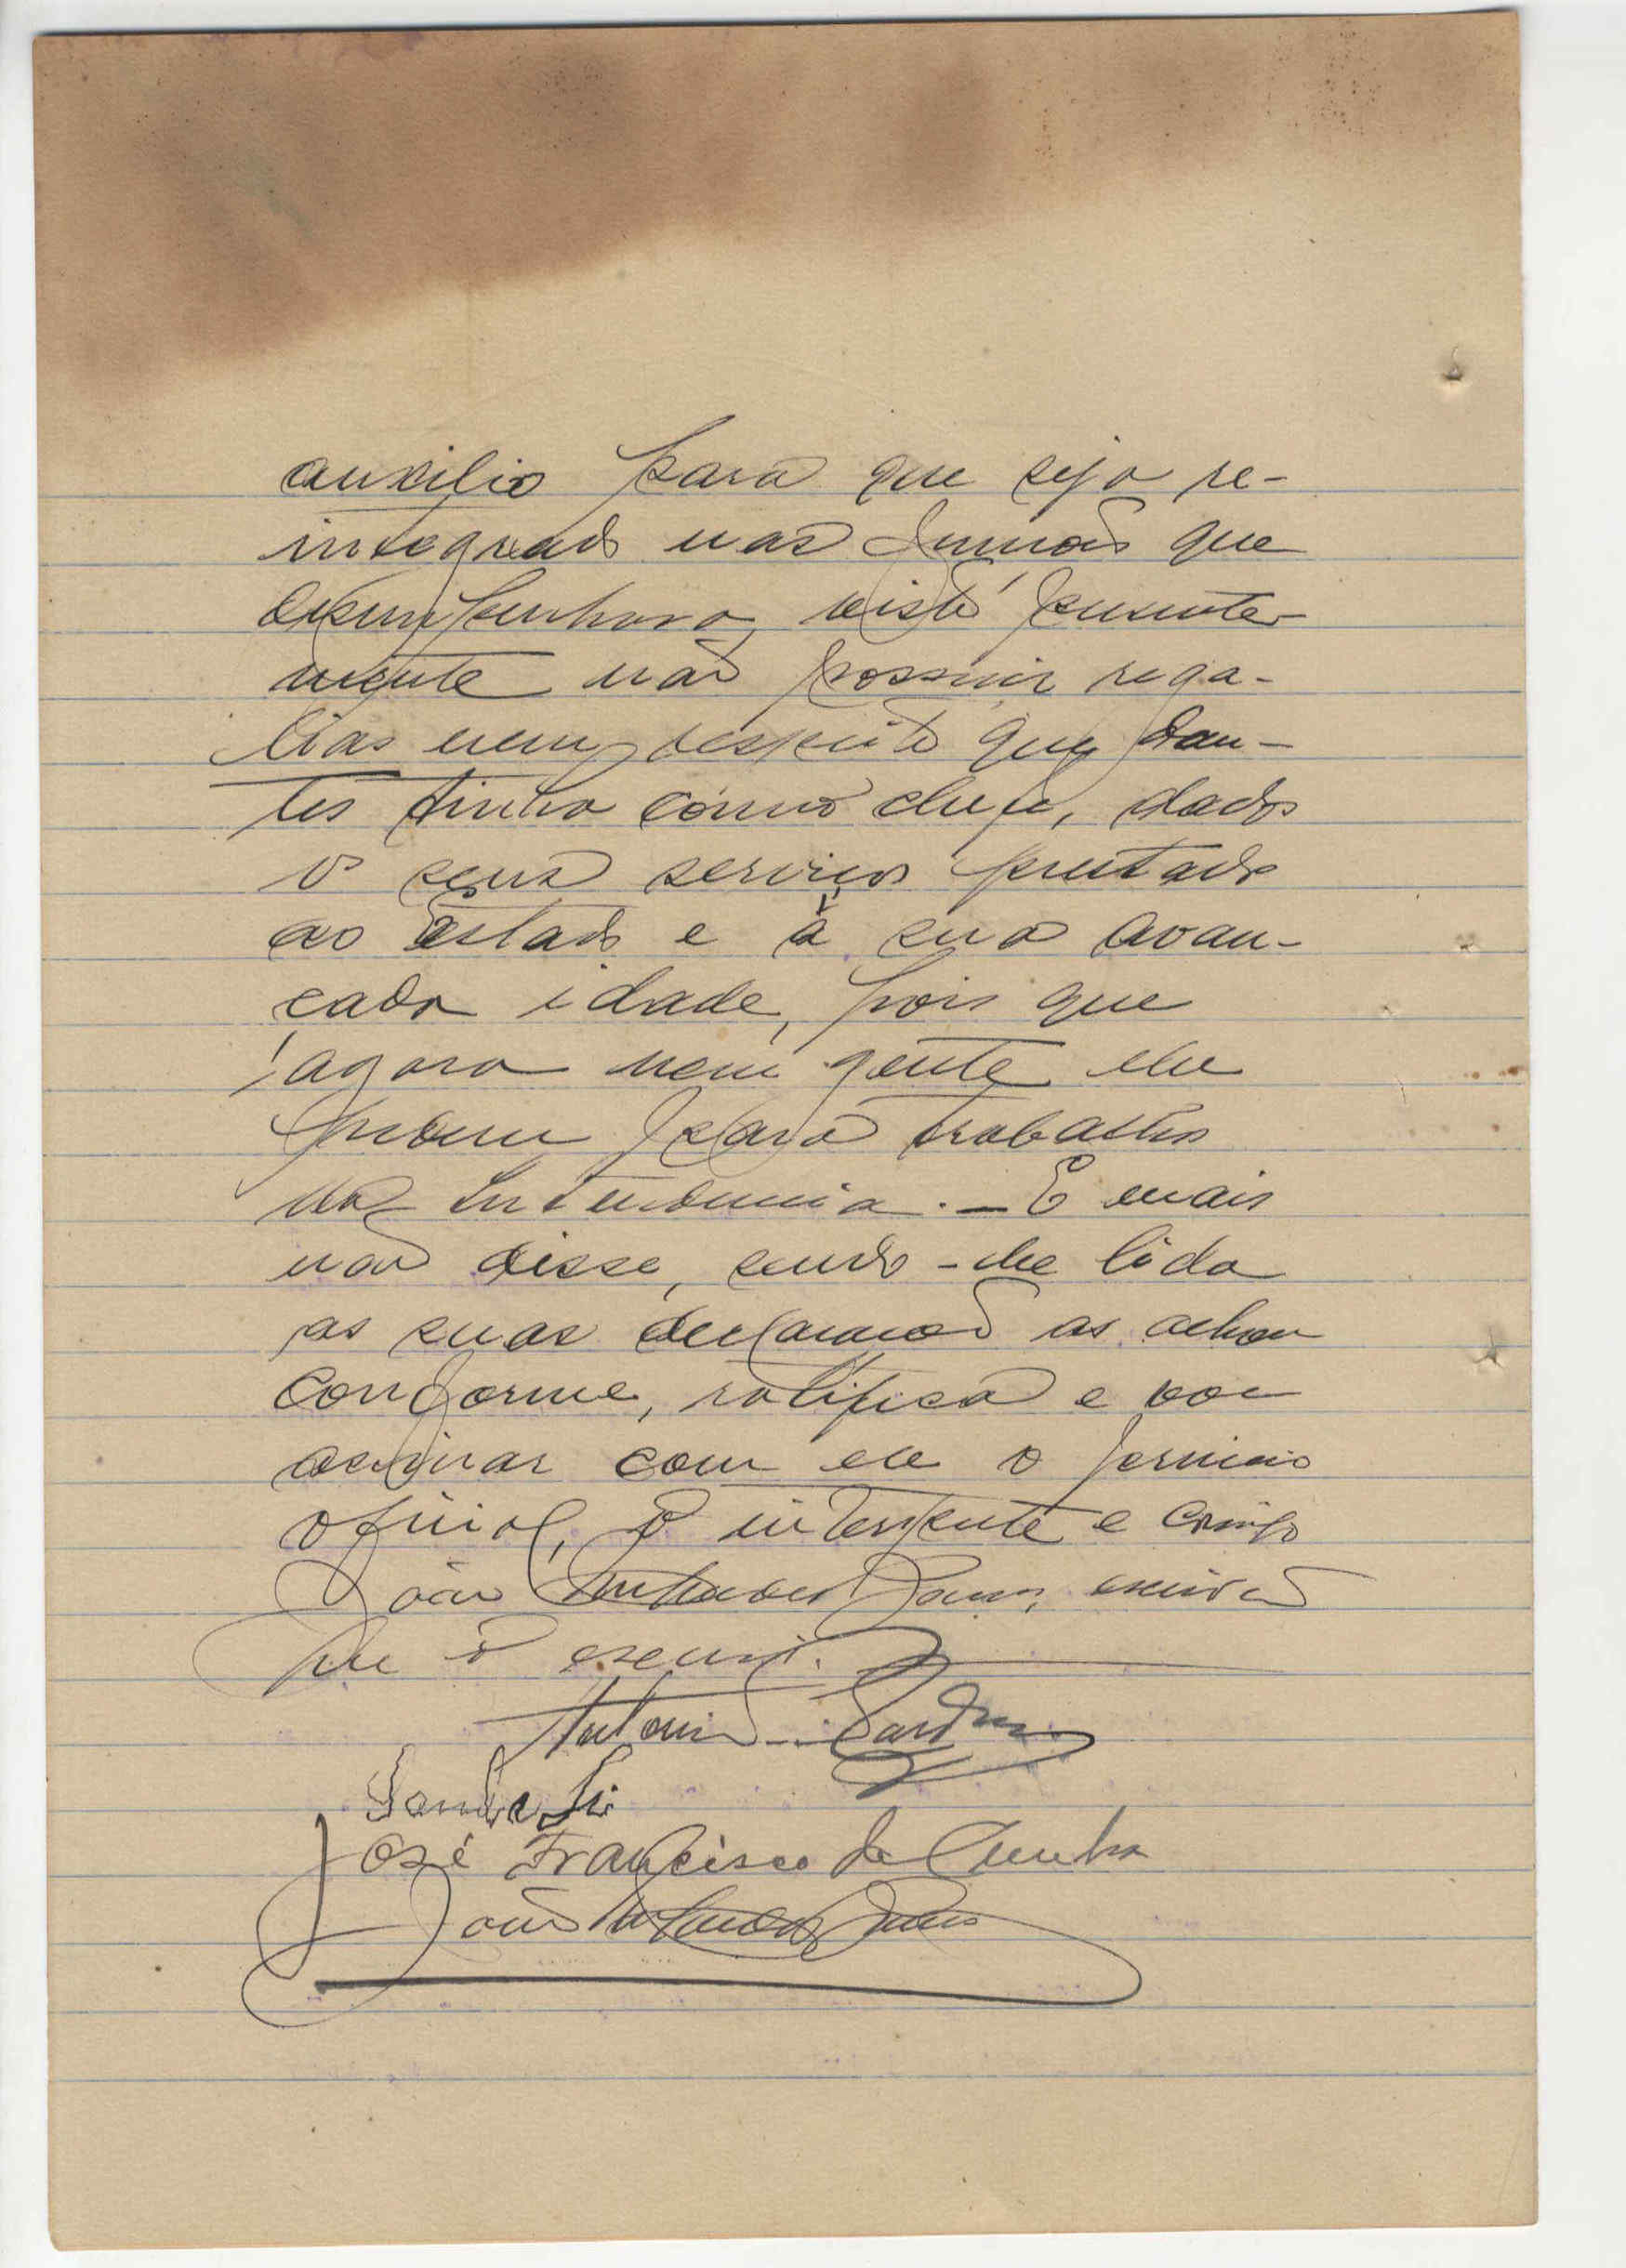 auxilio para que seja re-
integrado nas funções que
desempenhava, visto presente-
mente não possuir rega-
lias nem respeito que dan-
tes tinha como chefe, dados
os seus serviços prestados
ao Estado e à sua avan-
cada idade, pois que
agora nem gente lhe
pedem para trabalhos
da Intendencia. — E mais
não disse, sendo-lhe lida
as suas declarações as achou
conforme, ratifica e vai
assinar com ele o
oficial, o interprete e comigo
João escrivão
que o escrevi.
Antonio
José Francisco da Cunha
João